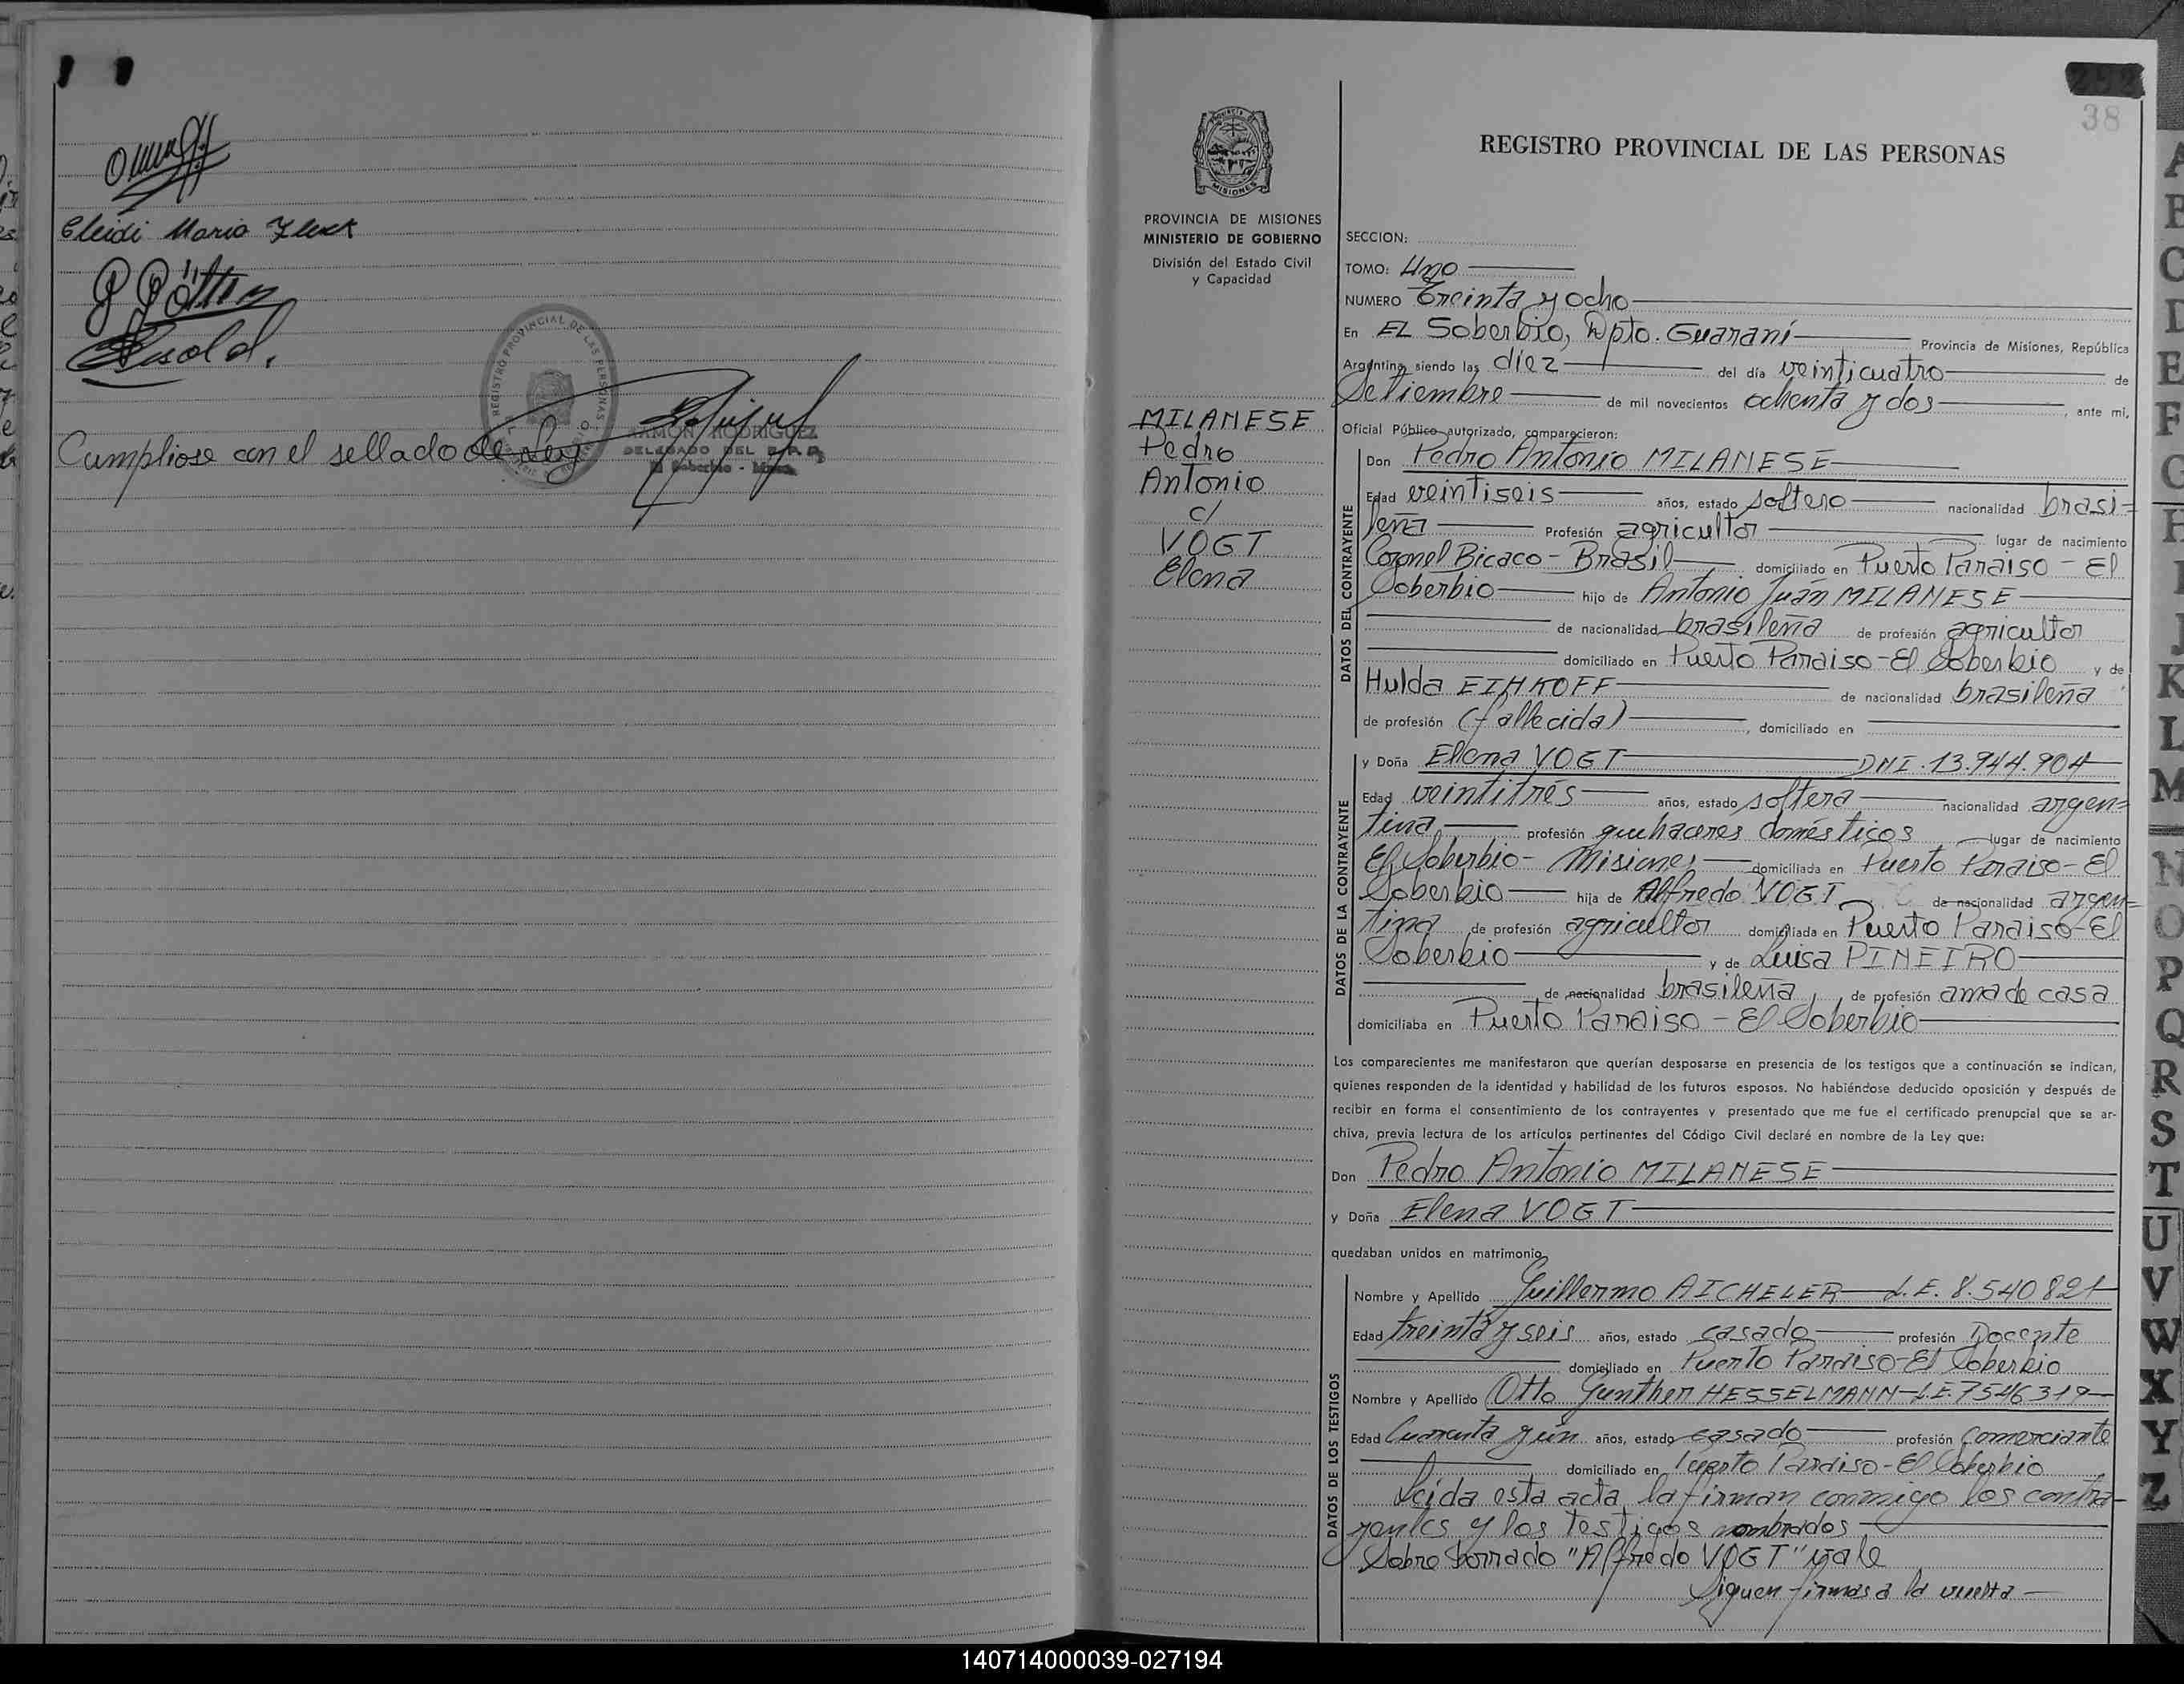 Cleidi Maria Fleck
REGISTRO PROVINCIAL DE LAS PERSONAS
RAMON RODRIGUEZ
DELEGADO DEL R.P.P.
El Soberbio - Mnes.
Cumpliose con el sellado de Ley
PROVINCIA DE MISIONES
MINISTERIO DE GOBIERNO
División del Estado Civil
y Capacidad
MILANESE
Pedro
Antonio
c/
VOGT
Elena
38
REGISTRO PROVINCIAL DE LAS PERSONAS
SECCION:
TOMO: Uno
NUMERO Treinta y ocho
En EL Soberbio, Dpto. Guaraní Provincia de Misiones, República
Argentina, siendo las diez del día veinticuatro de
Setiembre de mil novecientos ochenta y dos, ante mi,
Oficial Público autorizado, comparecieron:
DATOS DEL CONTRAYENTE
Don Pedro Antonio MILANESE
Edad veintiseis años, estado soltero nacionalidad brasi=
leña Profesión agricultor lugar de nacimiento
Coronel Bicaco - Brasil domiciliado en Puerto Paraiso - El
Soberbio hijo de Antonio Juán MILANESE
de nacionalidad brasileña de profesión agricultor
domiciliado en Puerto Paraiso - El Soberbio y de
Hulda EIHKOFF de nacionalidad brasileña
de profesión (fallecida), domiciliado en
DATOS DE LA CONTRAYENTE
y Doña Elena VOGT DNI. 13.944.904
Edad veintitrés años, estado soltera nacionalidad argen=
tina profesión quehaceres domésticos lugar de nacimiento
El Soberbio - Misiones domiciliada en Puerto Paraiso - El
Soberbio hija de Alfredo VOGT de nacionalidad argen=
tina de profesión agricultor domiciliada en Puerto Paraiso - El
Soberbio y de Luisa PINEIRO
de nacionalidad brasilena, de profesión ama de casa
domiciliaba en Puerto Paraiso - El Soberbio
Los comparecientes me manifestaron que querían desposarse en presencia de los testigos que a continuación se indican,
quienes responden de la identidad y habilidad de los futuros esposos. No habiéndose deducido oposición y después de
recibir en forma el consentimiento de los contrayentes y presentado que me fue el certificado prenupcial que se ar-
chiva, previa lectura de los artículos pertinentes del Código Civil declaré en nombre de la Ley que:
Don Pedro Antonio MILANESE
y Doña Elena VOGT
quedaban unidos en matrimonio
DATOS DE LOS TESTIGOS
Nombre y Apellido Guillermo AICHELER L.E. 8.540821
Edad treinta y seis años, estado casado profesión Docente
domiciliado en Puerto Paraiso - El Soberbio
Nombre y Apellido Otto Gunther HESSELMANN - L.E. 7546319
Edad Cuarenta y ún años, estado casado profesión Comerciante
domiciliado en Puerto Paraiso - El Soberbio
Leida esta acta, la firman conmigo los contra-
yentes y los testigos nombrados
Sobre borrado "Alfredo VOGT" vale
Siguen firmas a la vuelta
A
B
C
D
E
F
G
H
I
J
K
L
M
N
O
P
Q
R
S
T
U
V
W
X
Y
Z
140714000039-027194